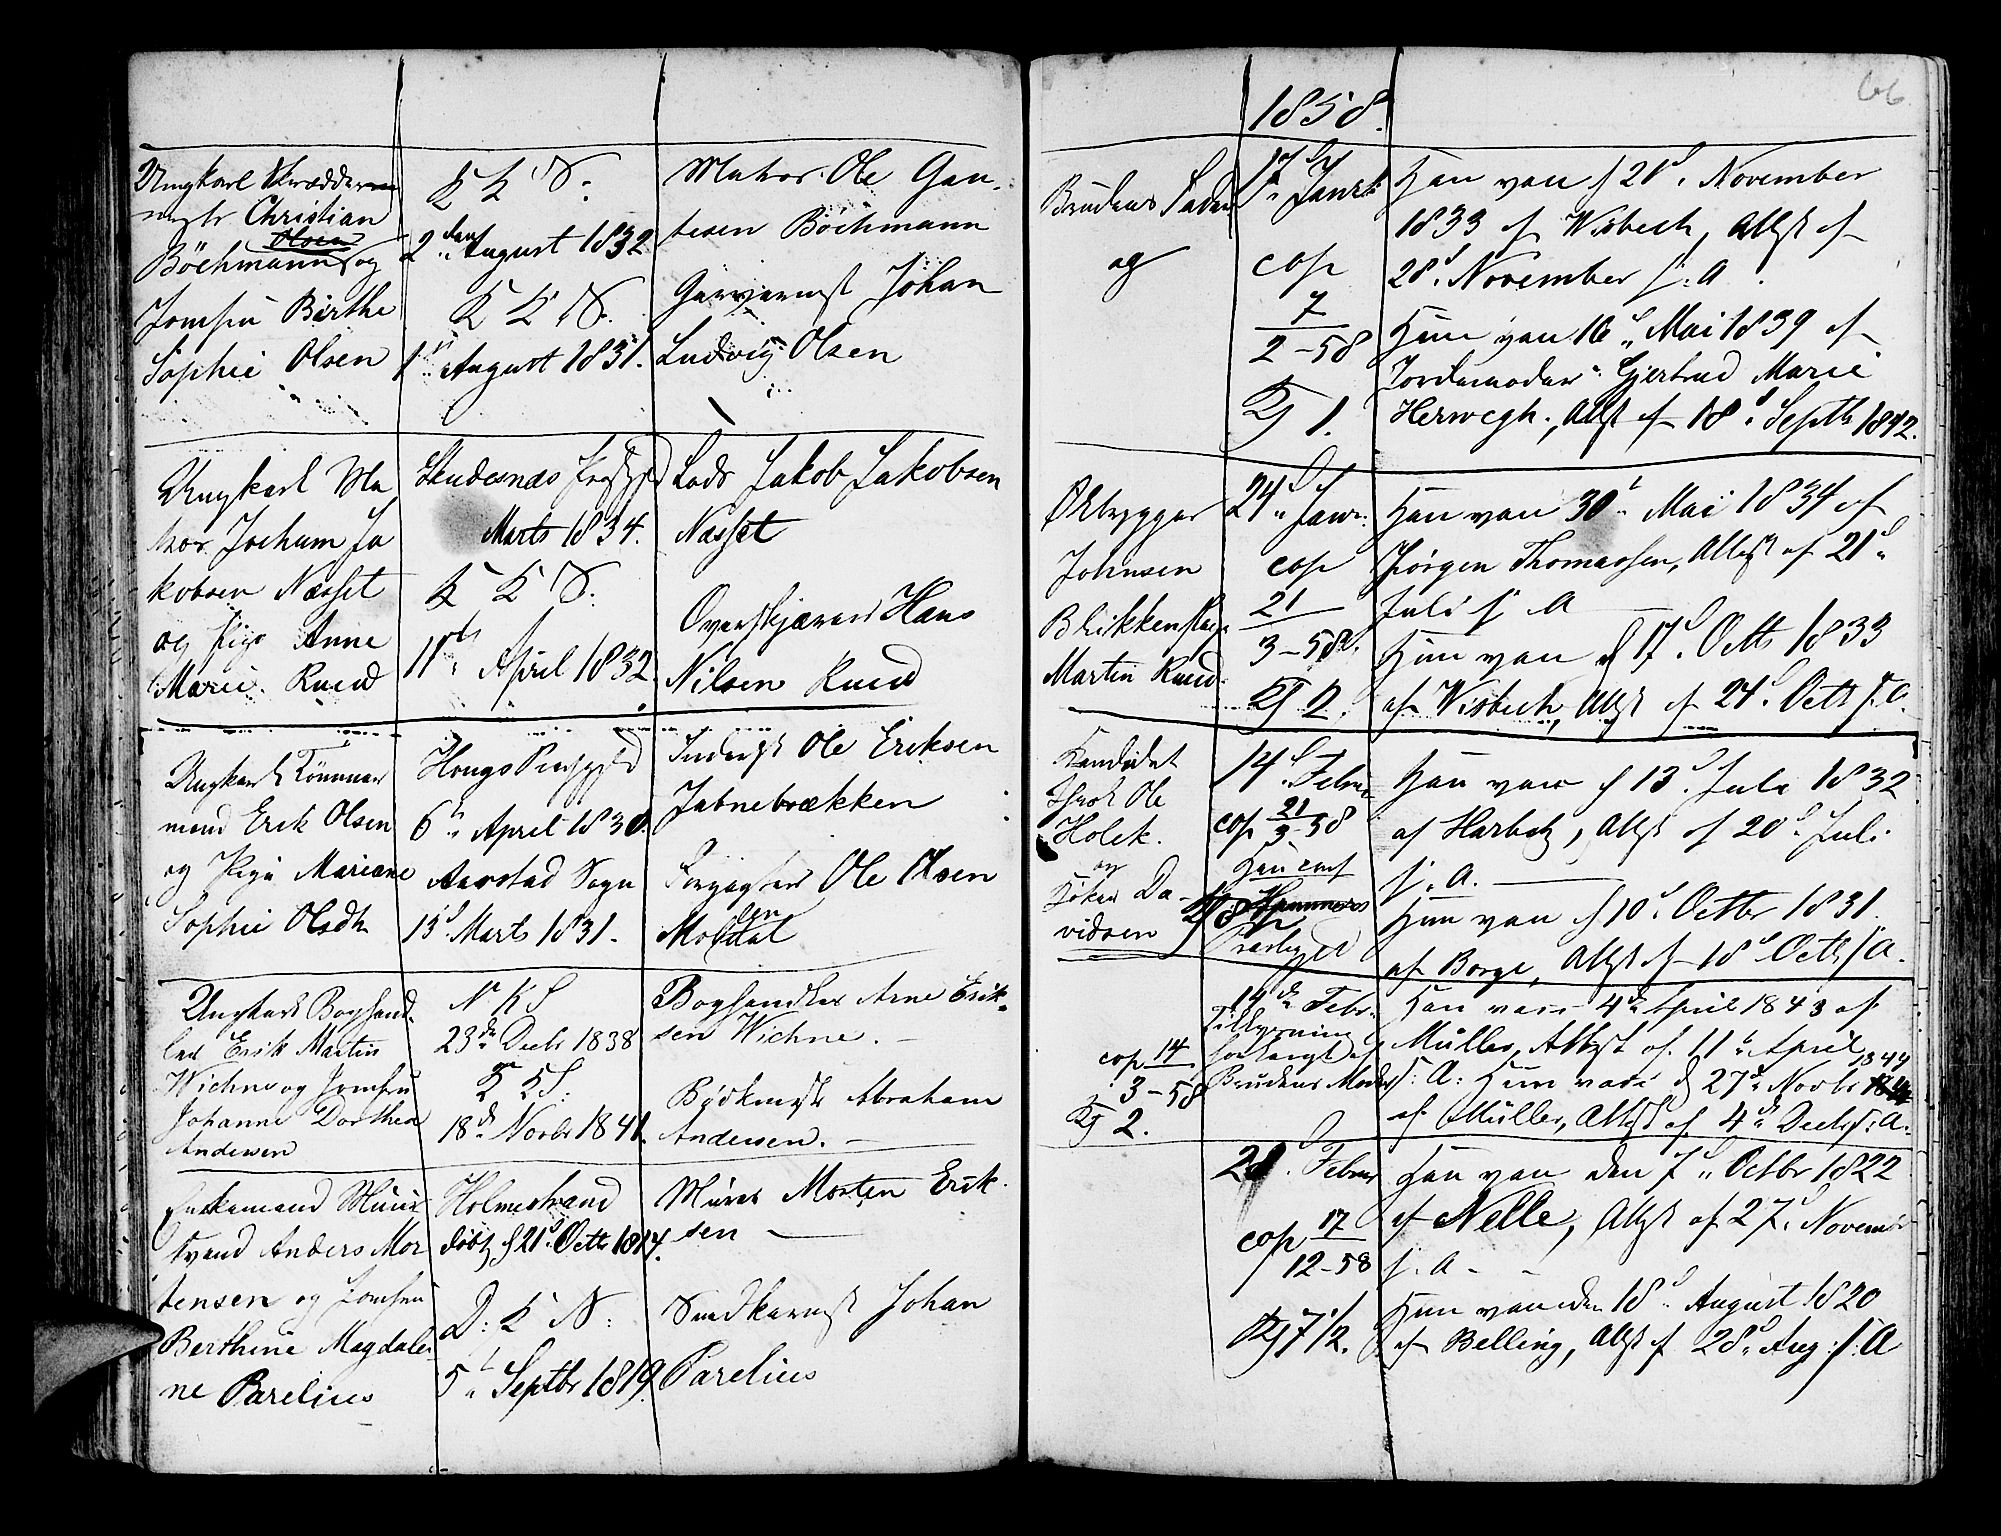 1858.
66
Ungkarl Skrædder
mstr Christian
Olsen
Böchmann og
Jomfru Birthe
Sophie Olsen
K K S.
2den August 1832
K K S.
1 August 1831.
Matros Ole Gan-
tesen Böchmann
Garvermst Johan
Ludvig Olsen
Brudens Fader
og
17d Janr
cop
7
2-58
Kj 1.
Han vacc d 20d November
1833 af Wisbech, Attst af
28d November s: A.
Hun vacc 16d Mai 1839 af
Jordemoder Gjertrud Marie
Herwegh., Attst af 18d Septb 1842.
Ungkarl Ma
tros Jochum Ja
kobsen Næsset
og Pige Anne
Marie Ruud
Skudesnæs Præstgjd
Marts 1834.
K K S.
11te April 1832.
Lods Jakob Jakobsen
Næsset
Overskjærer Hans
Nilsen Ruud
Johnsen
Blikkenslag
Martin Ruud.
24d Janr.
cop
21
3-58.
Kj 2.
Han vacc 30te Mai 1834 af
Jörgen Thomassen, Attest af 21d
Juli s. A
Hun vacc d 17d Octb 1833
af Wisbech, Attst af 24d Octb s. A.
Ungkarl Tömmer
mand Erik Olsen
og Pige Mariane
Sophie Olsdtr
Hougs Præstgjeld
6te April 1830.
Aarstad Sogn
15d Marts 1831.
Inderst Ole Eriksen
Jatnebrækken
Forpagter Ole Olsen
Kandidat
Ole
Holck.
og
Da-
vidsen
14d Febr
cop 21
3-58
Hammers
Præstegjeld
Han vacc d 13d Juli 1832
af Harbitz, Attst af 20d Juli
s. A.
Hun vacc d 10d Octbr 1831.
af Borge, Attst af 18d Octb s. A.
Ungkarl Boghand-
ler Erik Martin
Wichne og Jomfru
Johanne Dorthea
Andersen
N K S
23de Decbr 1838
K K S:
18de Novbr 1841.
Boghandler Arne Erik-
sen Wichne.
Bödkermstr Abraham
Andersen.
cop 14
3-58
Kj 2.
14de Febr.
Tillysning
forlangt af
Brudens Moder
Han vacc 4de April 1843 af
Müller, Attst af 11te April
s: A: Hun vacc d 27de Novbr 1844
af Müller, Attst af 4de Decbr s: A.
Enkemand Muur
svend Anders Mor
tensen og Jomfru
Berthine Magdale-
ne Parelius
Holmestrand
döbt d 21d Octb 1814.
D: K S:
5te Septbr 1819.
Murer Morten Erik-
sen
Snedkermst Johan
Parelius
28. Febr
cop 17
12-58
Kj 7 1/2.
Han vacc den 7de Octbr 1822
af Nelle, Attst af 27d Novembr
s: A
Hun vacc den 18d August 1820
af Belling, Attst af 28d Aug: s: A